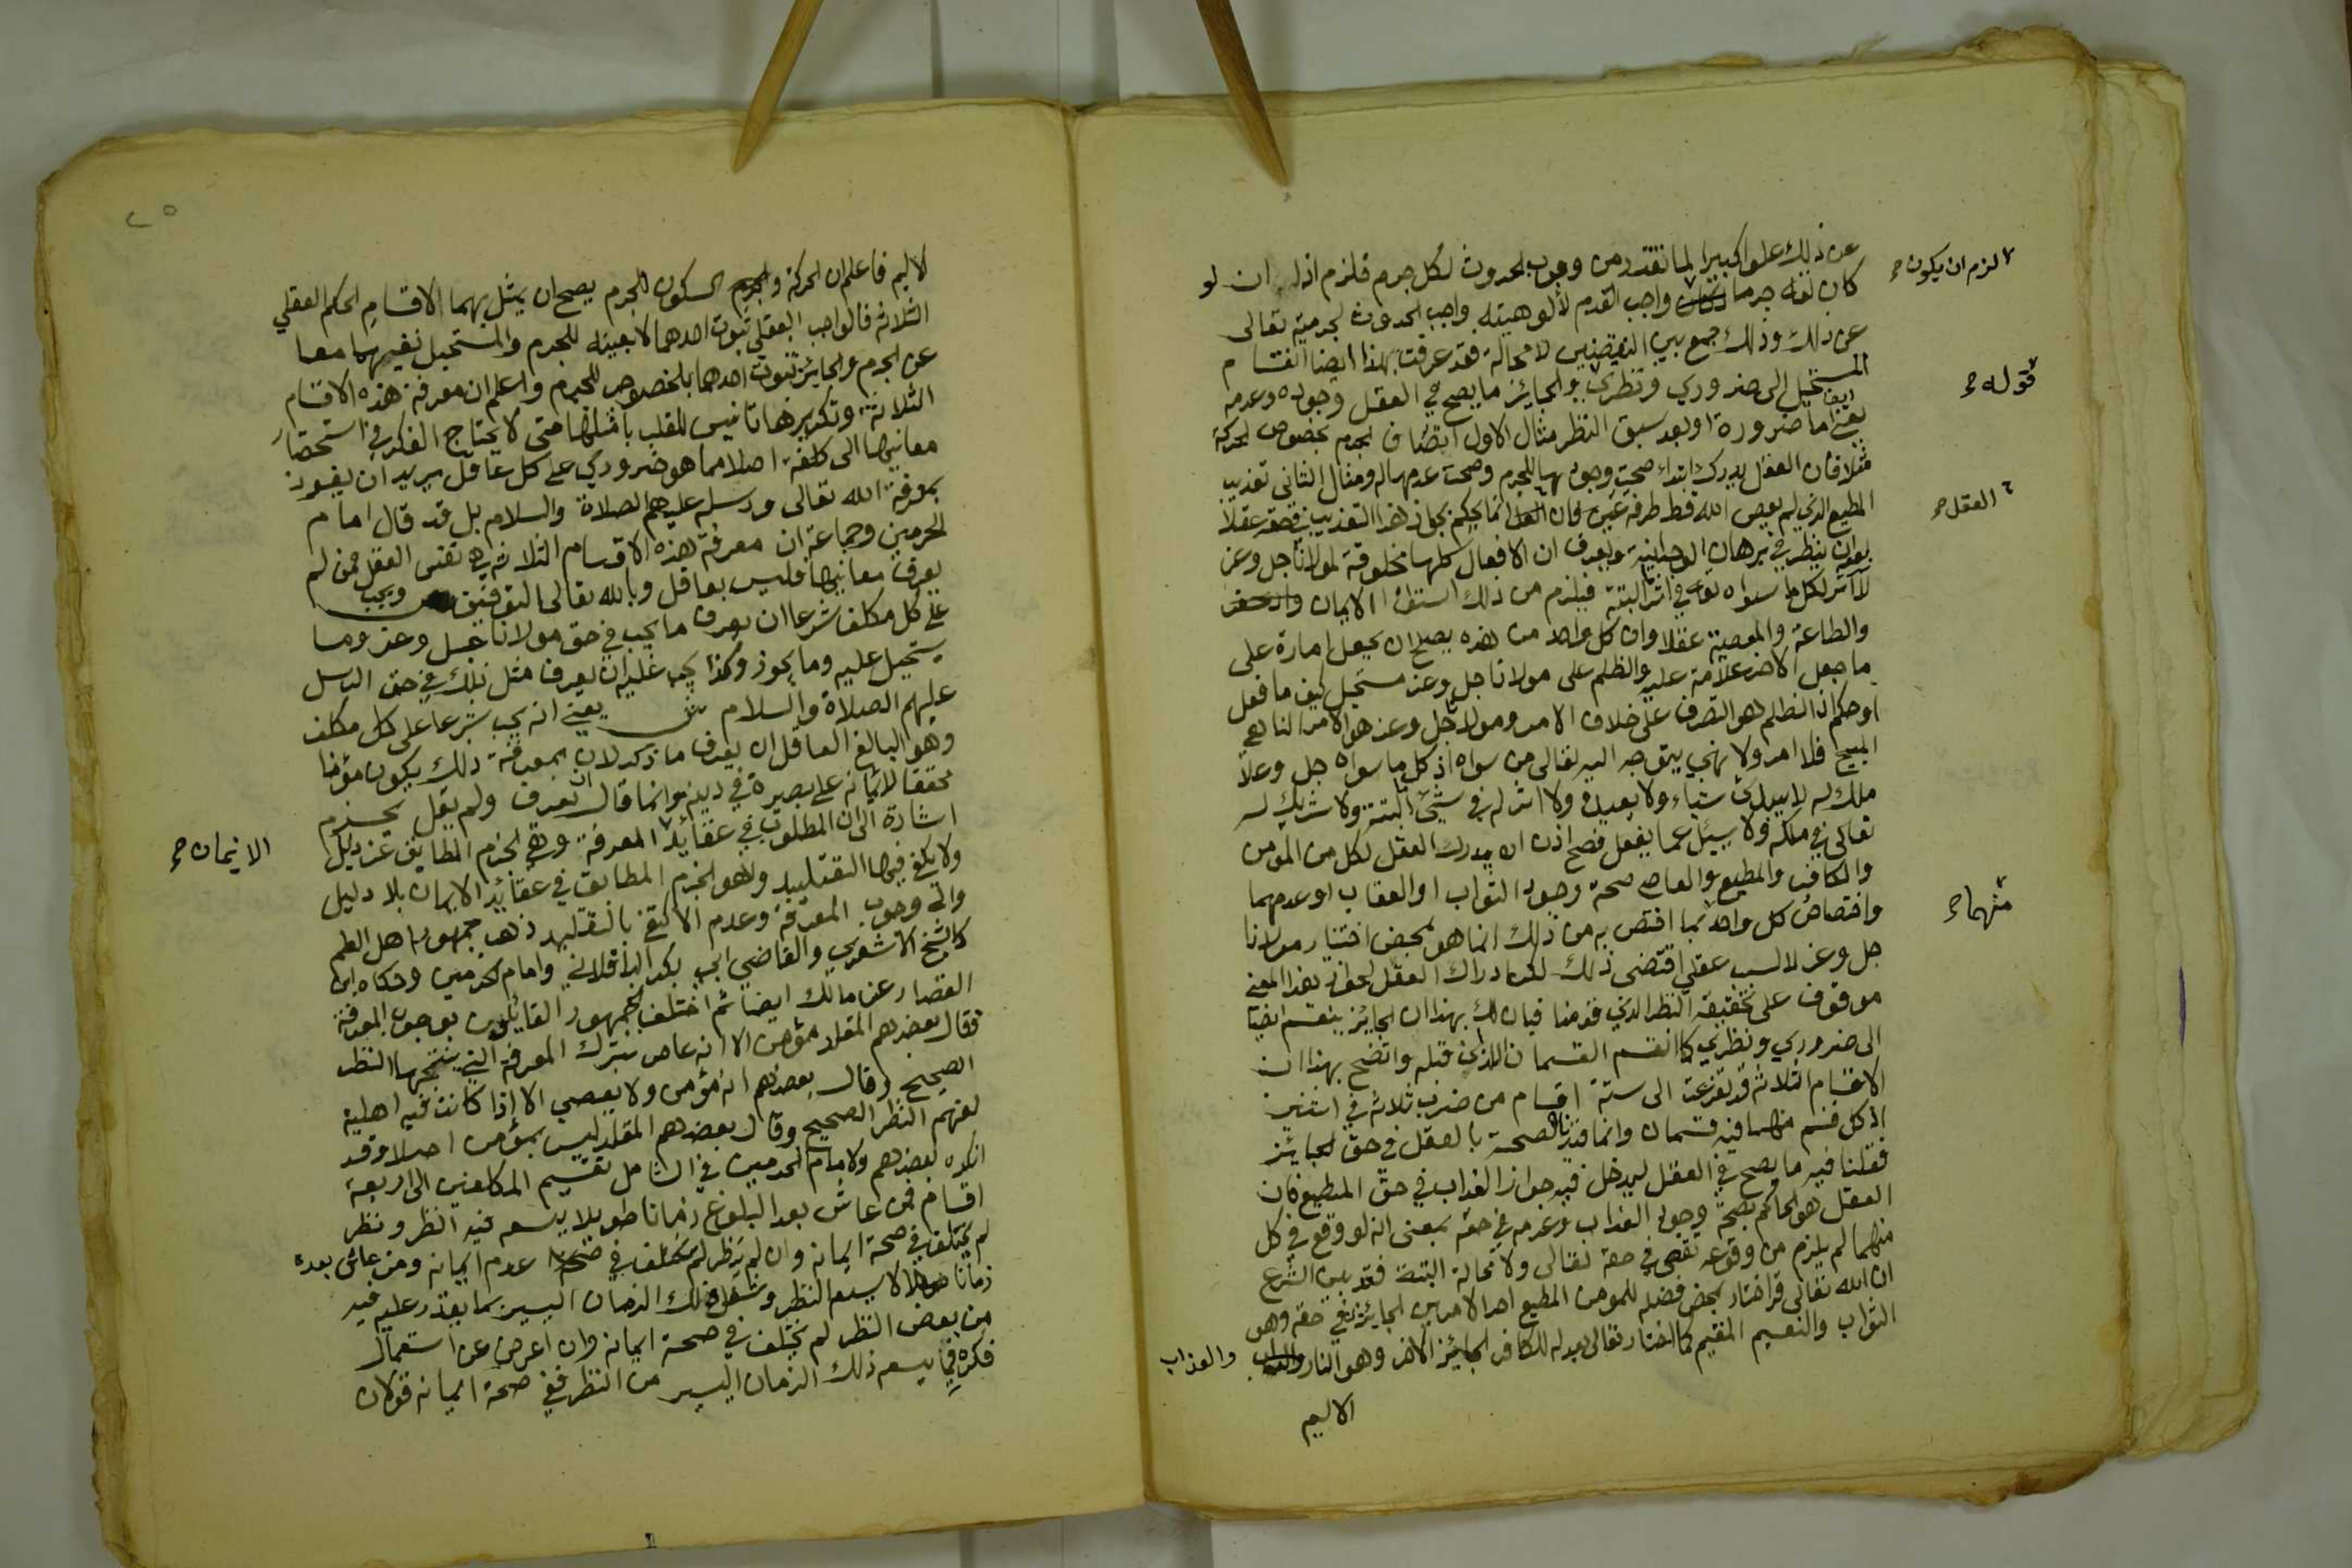 عن ذلك علوا كبيرا لما تقدر من وجوب الحدوث لكل جرم فلزم اذا ان لو
كان تعالى جرما واجب القدم لألوهيته واجب الحدوث لجرميته تعالى
عن ذلك وذلك جمع بين النقيضين لا محالة فقد عرفت بهذا ايضا انقسام
المستحيل الى ضروري ونظري والجائز ما يصح في العقل وجوده وعدمه
يعني اما ضرورة او بعد سبق النظر مثال الاول اتصاف الجرم بخصوص الحركة
مثلا فان العقل يدرك ابتداء صحة وجودها للجرم وصحة عدمها له ومثال الثاني تعذيب
المطيع الذي لم يعص الله قط طرفة عين فان انما يحكم بجواز هذا التعذيب في حقه عقلا
بعد ان ينظر في برهان الوحدانية ويعرف ان الافعال كلها مخلوقة لمولانا جل وعز
لا اثر لكل ما سواه تعالى في اثر البتة فيلزم من ذلك استواء الايمان والكفر
والطاعة والمعصية عقلا وان كل واحد من هذه يصلح ان يجعل امارة على
ما جعل الاخر علامة عليه والظلم على مولانا جل وعز مستحيل كيف ما فعل
او حكم اذ الظلم هو التصرف على خلاف الامر ومولانا جل وعز هو الامر الناهي
المبيح فلا امر ولا نهي يتوجه اليه تعالى من سواه اذ كل ما سواه جل وعلا
ملك له لا يبدئ شياء ولا يعيد ولا اثر له في شيئ البتة ولا شريك له
تعالى في ملكه ولا يسئل عما يفعل فصح اذن ان يدرك العقل لكل من المومن
والكافر والمطيع والعاصي صحة وجود الثواب او العقاب او عدمهما
واختصاص كل واحد بما اختص به من ذلك انما هو بمحض اختيار مولانا
جل وعز لا لسبب عقلي اقتضى ذلك لكن ادراك العقل لجواز هذا المعنى
موقوف على تحقيق النظر الذي قدمنا فبان لك بهذا ان الجائز ينقسم ايضا
الى ضروري ونظري كما انقسم القسمان اللذان قبله واتضح بهذا ان
الاقسام الثلاثة قد تفرعت الى ستة اقسام من ضرب ثلاثة في اثنين
اذ كل قسم منهما فيه قسمان وانما قيدنا الصحة بالعقل في حق الجائز
فقلنا فيه ما يصح في العقل ليدخل فيه جواز العذاب في حق المطيع فان
العقل هو الحاكم بصحة وجود العذاب وعدمه في حقه بمعنى انه لو وقع في كل
منهما لم يلزم من وقوعه نقص في حقه تعالى ولا محالة البتة فقد بين الشرع
ان الله تعالى قد اختار بمحض فضله للمومن المطيع احد الامرين الجائزين في حقه وهو
الثواب والنعيم المقيم كما اختار تعالى بعدله للكافر الجائز الاخر وهو النار والعذاب
الاليم
لزم ان يكون
قوله
العقل
منهما
٢٥
لاليم فاعلم ان الحركة والسكون للجرم يصح ان يمثل بهما الاقسام الحكم العقلي
الثلاثة فالواجب العقلي ثبوت احدهما لا بعينه للجرم والمستحيل نفيهما معا
عن الجرم والجائز ثبوت احدهما بالخصوص للجرم واعلم ان معرفة هذه الاقسام
الثلاثة وتكريرها تانيس للقلب بامثلتها حتى لا يحتاج الفكر في استحضار
معانيها الى كلفة اصلا مما هو ضروري على كل عاقل يريد ان يفوز
بمعرفة الله تعالى ورسله عليهم الصلاة والسلام بل قد قال امام
الحرمين وجماعة ان معرفة هذه الاقسام الثلاثة هي نفس العقل فمن لم
يعرف معانيها فليس بعاقل وبالله تعالى التوفيق ص ويجب
على كل مكلف شرعا ان يعرف ما يجب في حق مولانا جل وعز وما
يستحيل عليه وما يجوز وكذا يجب عليه ان يعرف مثل ذلك في حق الرسل
عليهم الصلاة والسلام ش يعني انه يجب شرعا على كل مكلف
وهو البالغ العاقل ان يعرف ما ذكر لان بمعرفة ذلك يكون مؤمنا
محققا لايمانه على بصيرة في دينه وانما قال ان يعرف ولم يقل يجزم
اشارة الى ان المطلوب في عقائد المعرفة وهي الجزم المطابق عن دليل
ولا يكفي فيها التقليد وهو الجزم المطابق في عقائد الايمان بلا دليل
والى وجوب المعرفة وعدم الاكتفى بالتقليد ذهب جمهور اهل العلم
كالشيخ الاشعري والقاضي ابي بكر الباقلاني وامام الحرمين وحكاه ابن
القصار عن مالك ايضا ثم اختلف الجمهور القائلون بوجوب المعرفة
فقال بعضهم المقلد مؤمن الا انه عاص بترك المعرفة التي ينتجها النظر
الصحيح وقال بعضهم انه مؤمن ولا يعصي الا اذا كانت فيه اهلية
لفهم النظر الصحيح وقال بعضهم المقلد ليس بمؤمن اصلا وقد
انكره بعضهم ولامام الحرمين في الشامل تقسيم المكلفين الى اربعة
اقسام فمن عاش بعد البلوغ زمانا طويلا يسعه فيه النظر ونظر
لم يختلف في صحة ايمانه وان لم ينظر لم يختلف في عدم ايمانه ومن عاش بعده
زمانا لا يسعه النظر وشغل ذلك الزمان اليسير بما يقدر عليه فيه
من بعض النظر لم يختلف في صحة ايمانه وان اعرض عن استعمال
فكره فيما يسعه ذلك الزمان اليسير من النظر ففي صحة ايمانه قولان
الايمان